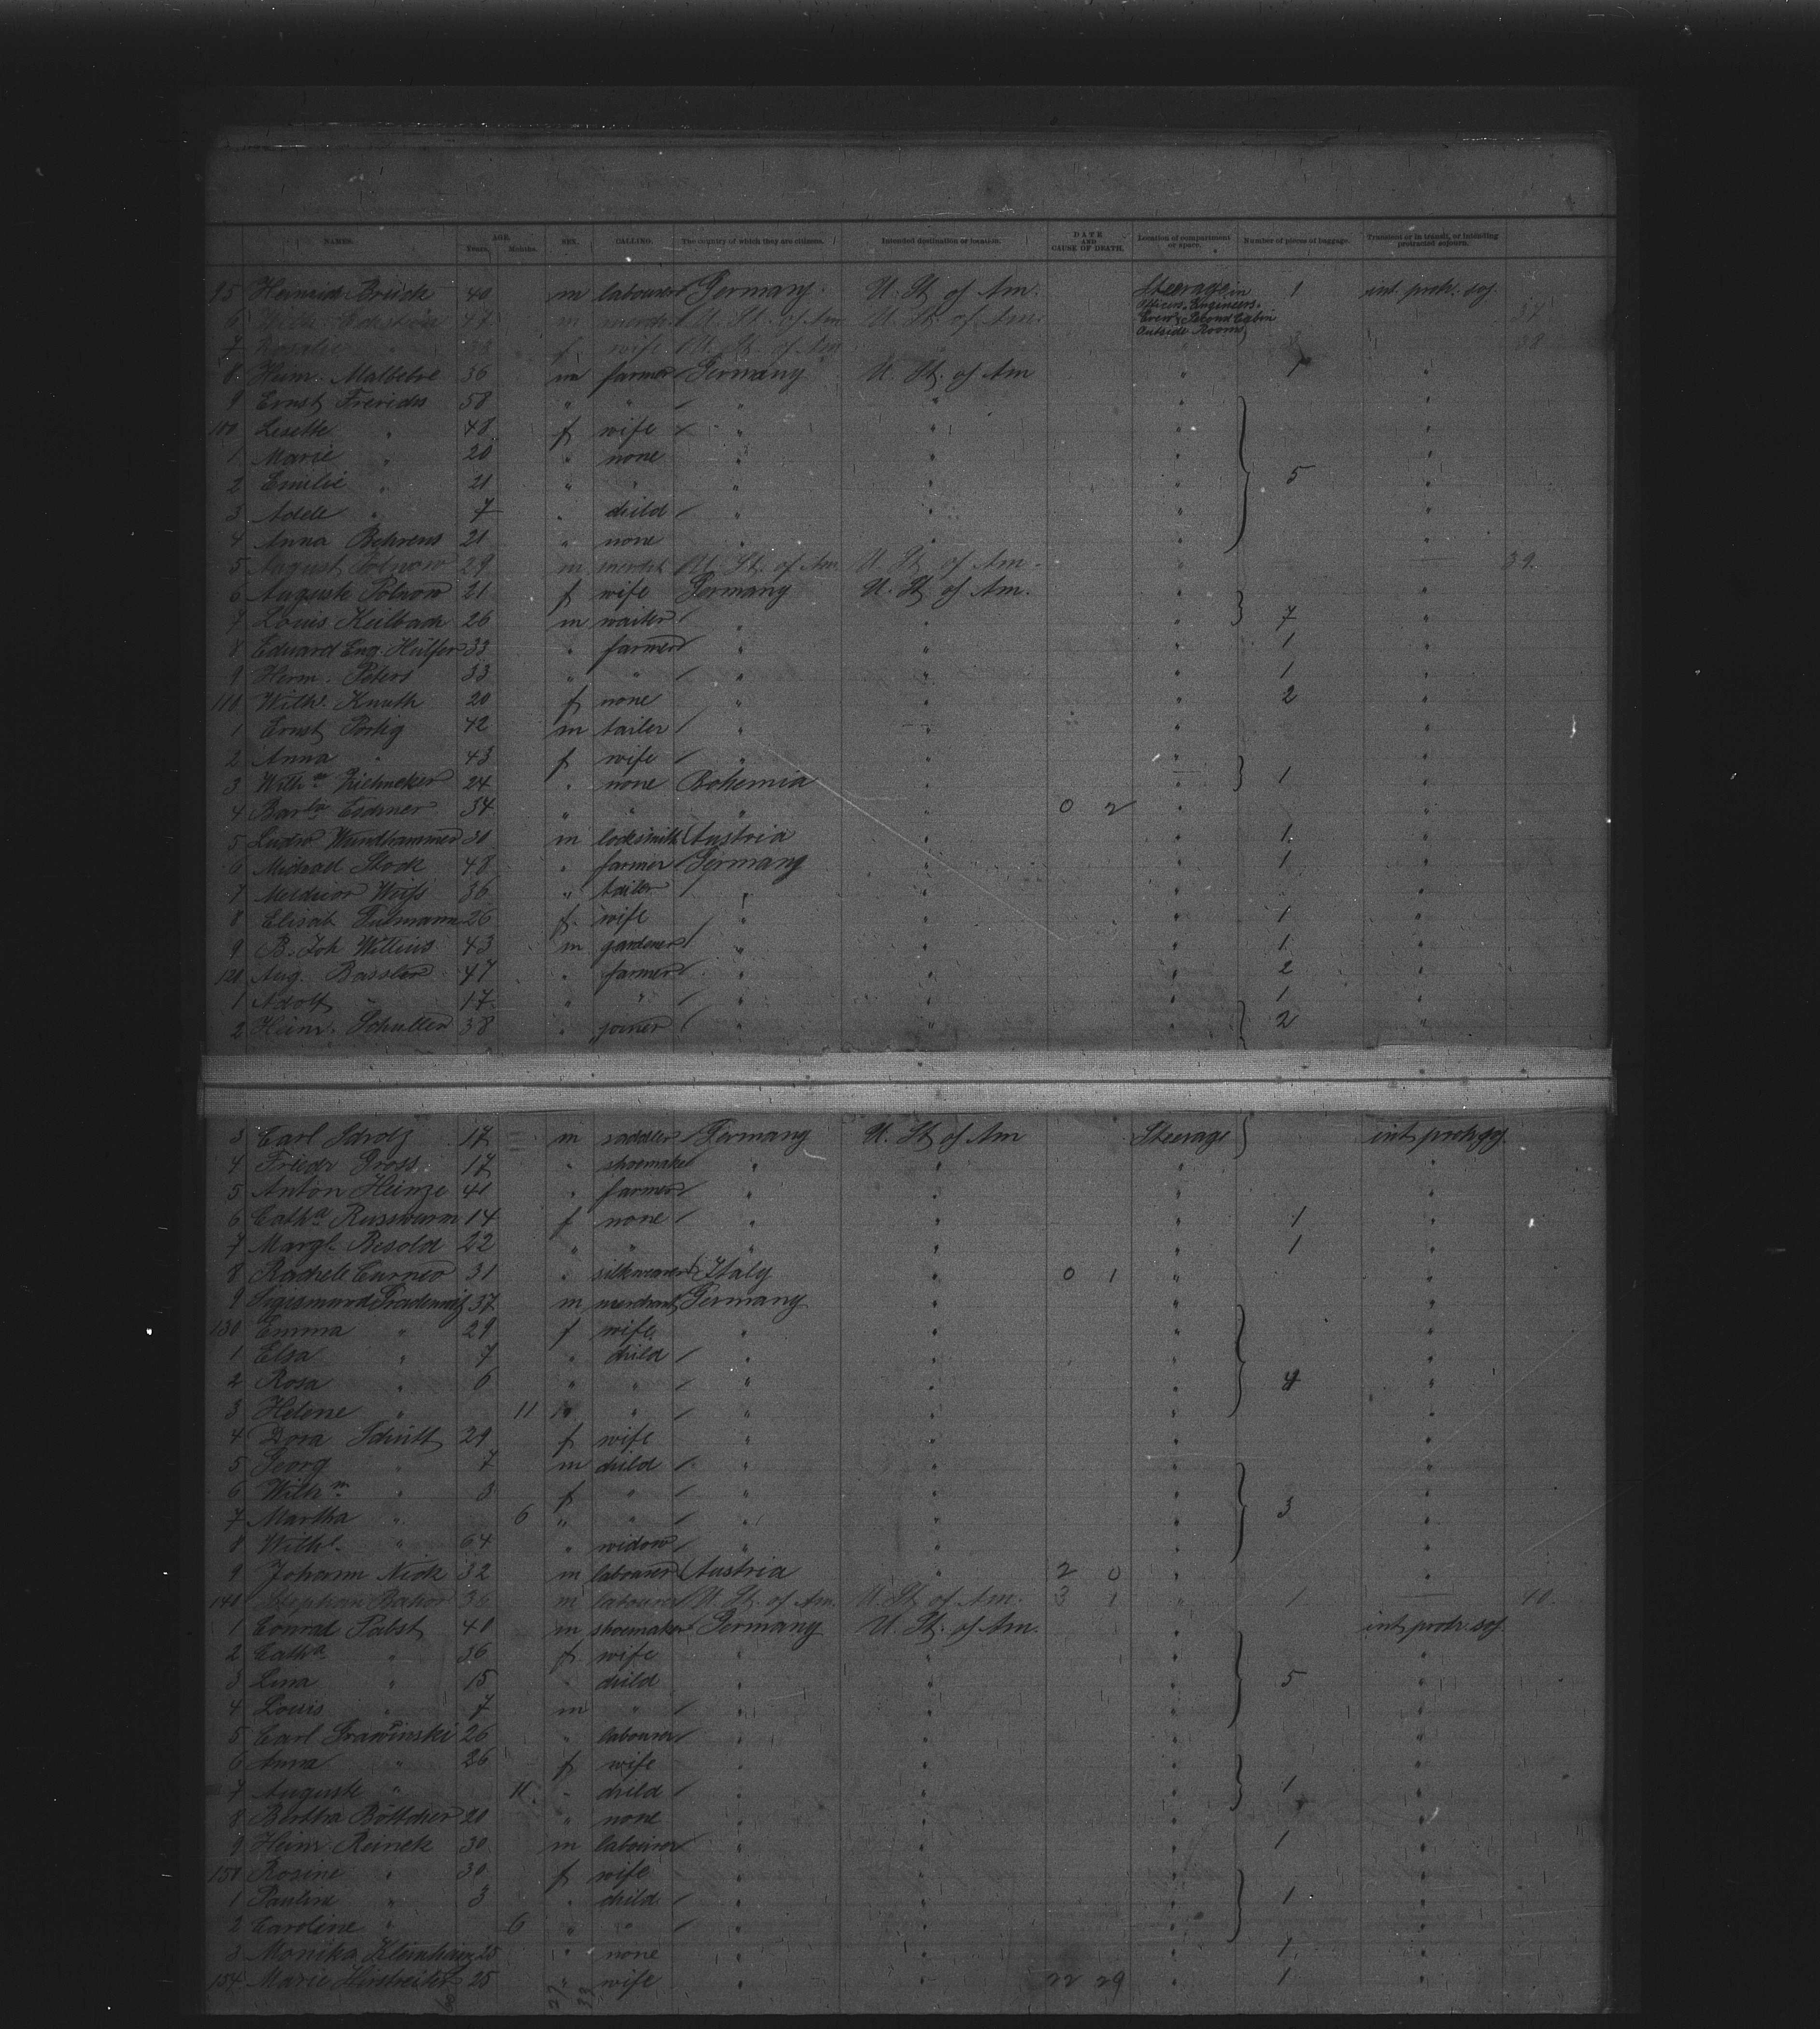 NAMES. AGE. Years. Months. SEX. CALLING. The country of which they are citizens. Intended destination or location. DATE AND CAUSE OF DEATH. Location of compartment or space. Number of pieces of baggage. Transient or in transit, or intending protracted sojourn.
95 Heinrich Brück 40 m labourer Germany U. St. of Am. Steerage in 1 int. protr. soj.
Officers, Engineers,
6 47 m U. St. of Am. U. St. of Am. Crew & Second Cabin 37
Outside Rooms
7 f wife U. St. of Am. 38
8 Heinr. 36 m farmer Germany U. St. of Am 1 "
9 Ernst Frerichs 58 " " " " " "
100 Lisette " 48 f wife " " " "
1 Marie " 20 " none " " " "
2 Emilie " 21 " " " " " 5 "
3 Adele " 7 " child " " " "
4 Anna Behrens 21 " none " " " "
5 August 29 m U. St. of Am. U. St. of Am. " — 39
6 Auguste 21 f wife Germany U. St. of Am. " "
7 Louis Keilbach 26 m waiter " " " 7 "
8 Eduard Eug. Hülfer 33 " farmer " " " 1 "
9 Herm. Peters 33 " " " " " 1 "
110 Wilh. Knuth 20 f none " " " 2 "
1 Ernst Portig 42 m tailer " " " "
2 Anna " 43 f wife " " " "
3 Wilhm 24 " none Bohemia " 1 "
4 Barba 34 " " " " 0 2 " "
5 Ludw. Wundhammer 30 m locksmith Austria " " 1 "
6 Michael Stock 48 " farmer Germany " " 1 "
7 Melchior Weiss 36 " tailer " " " "
8 Elisab. 26 f wife " " " 1 "
9 B. Joh. Willius 43 m gardener " " " 1 "
120 Aug. Bassler 47 " farmer " " " 2 "
1 Adolf " 17 " " " " " 1 "
2 Heinr. Schulten 38 " joiner " " " 2 "
3 Carl 17 m saddler Germany U. St. of Am Steerage int. protr. soj.
4 Friedr Gross 17 " shoemaker " " " "
5 Anton Heinze 41 " farmer " " " "
6 Catha Russwurm 14 f none " " " 1 "
7 Margt. Besold 22 " " " " " 1 "
8 Rachele Curneo 31 " silkweaver Italy " 0 1 " "
9 Sigismund 37 m merchant Germany " " "
130 Emma " 29 f wife " " " "
1 Elsa " 7 " child " " " "
2 Rosa " 6 " " " " " 4 "
3 Helene " 11 " " " " " "
4 Dora Schütt 29 f wife " " " "
5 Georg " 7 m child " " " "
6 Wilhm " 3 f " " " " "
7 Martha " 6 " " " " " 3 "
8 Wilhl. " 64 " widow " " " "
9 Johann Nick 32 m labourer Austria " 2 0 " "
140 Stephan 36 m labourer U. St. of Am. U. St. of Am. 3 1 " 1 — 40
1 Conrad Pabst 40 m shoemaker Germany U. St. of Am. " int. protr. soj
2 Catha " 36 f wife " " " "
3 Lina " 15 " child " " " 5 "
4 Louis " 7 m " " " " "
5 Carl Grawinski 26 " labourer " " " "
6 Anna " 26 f wife " " " "
7 Auguste " 11 " child " " " 1 "
8 Bertha Böttcher 20 " none " " " "
9 Heinr. Reineck 30 m labourer " " " 1 "
150 Rosine " 30 f wife " " " "
1 Pauline " 3 " child " " " 1 "
2 Caroline " 6 " " " " " "
3 Monika Kleinhainz 25 " none " " " 1 "
154 Marie 25 " wife " " 22 29 " 1 "